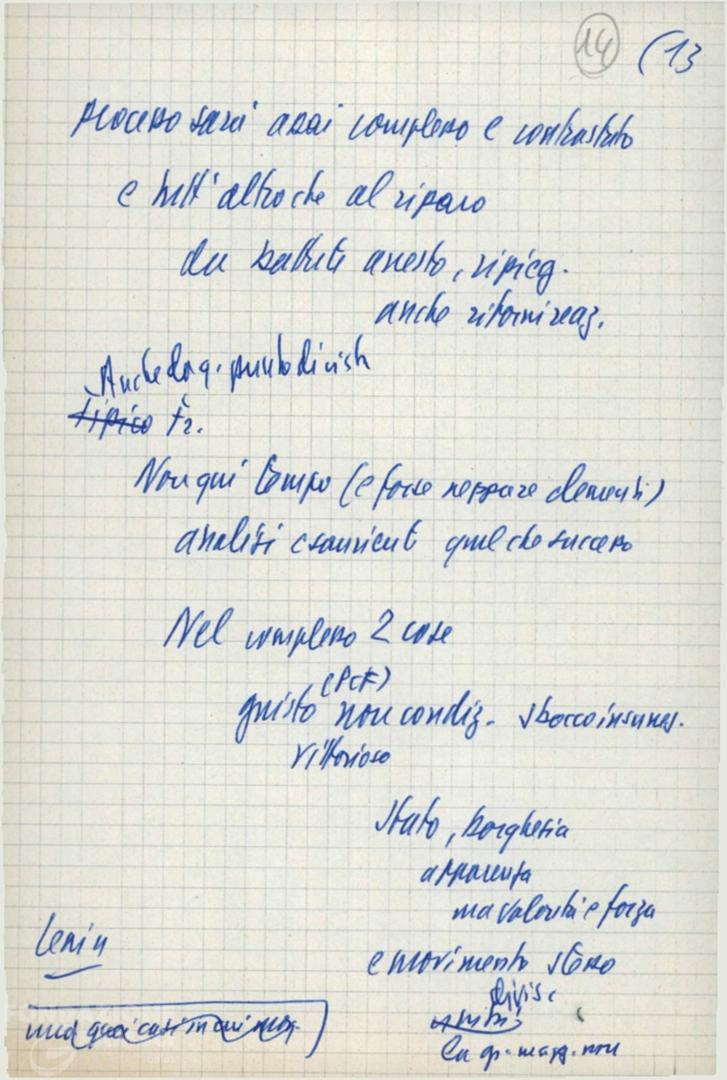 14 (13
processo sarà assai complesso e contrastato
e tutt'altro che al riparo
da battute arresto, ripieg.
anche ritorni reaz.
Anche da q. punto di vista
tipico Fr.
Non qui tempo (e forse neppure elementi)
analisi esaurient quel che successo
Nel complesso 2 cose
(PCF)
giusto non condiz. sbocco insurrez.
vittorioso
Stato, borghesia
apparenza
ma volontà e forza
Lenin
e movimento stesso
divis
la gr. magg. non